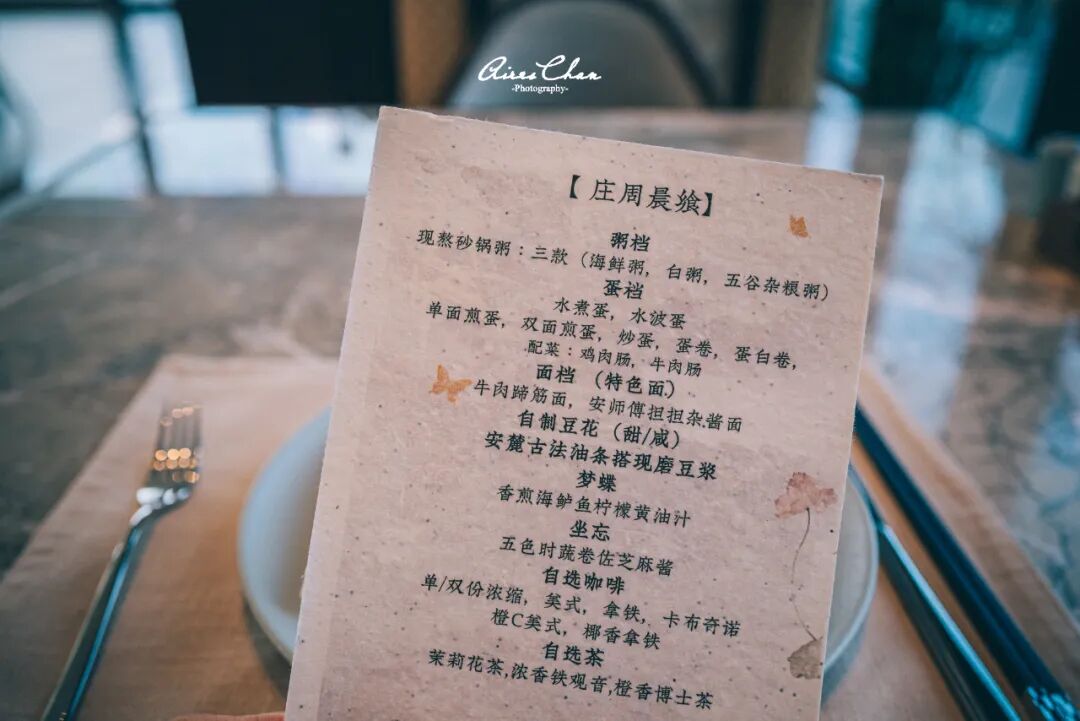 Aires Chan
-Photography-
【庄周晨飨】
粥档
现熬砂锅粥：三款（海鲜粥，白粥，五谷杂粮粥）
蛋档
水煮蛋，水波蛋
单面煎蛋，双面煎蛋，炒蛋，蛋卷，蛋白卷，
配菜：鸡肉肠，牛肉肠
面档（特色面）
牛肉蹄筋面，安师傅担担杂酱面
自制豆花（甜/咸）
安麓古法油条搭现磨豆浆
梦蝶
香煎海鲈鱼柠檬黄油汁
坐忘
五色时蔬卷佐芝麻酱
自选咖啡
单/双份浓缩，美式，拿铁，卡布奇诺
橙C美式，椰香拿铁
自选茶
茉莉花茶,浓香铁观音,橙香博士茶